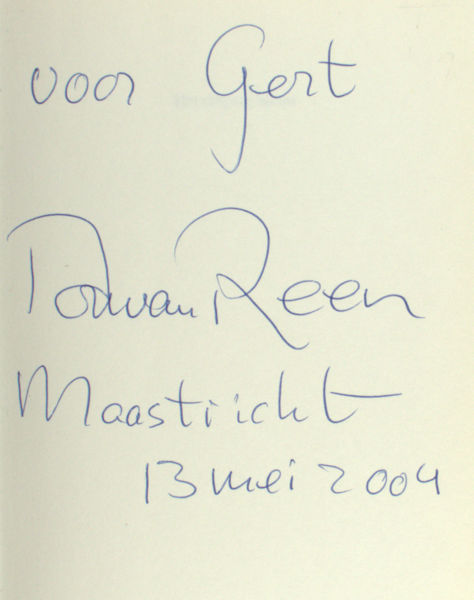 voor Gert
Ton van Reen
Maastricht
13 mei 2004